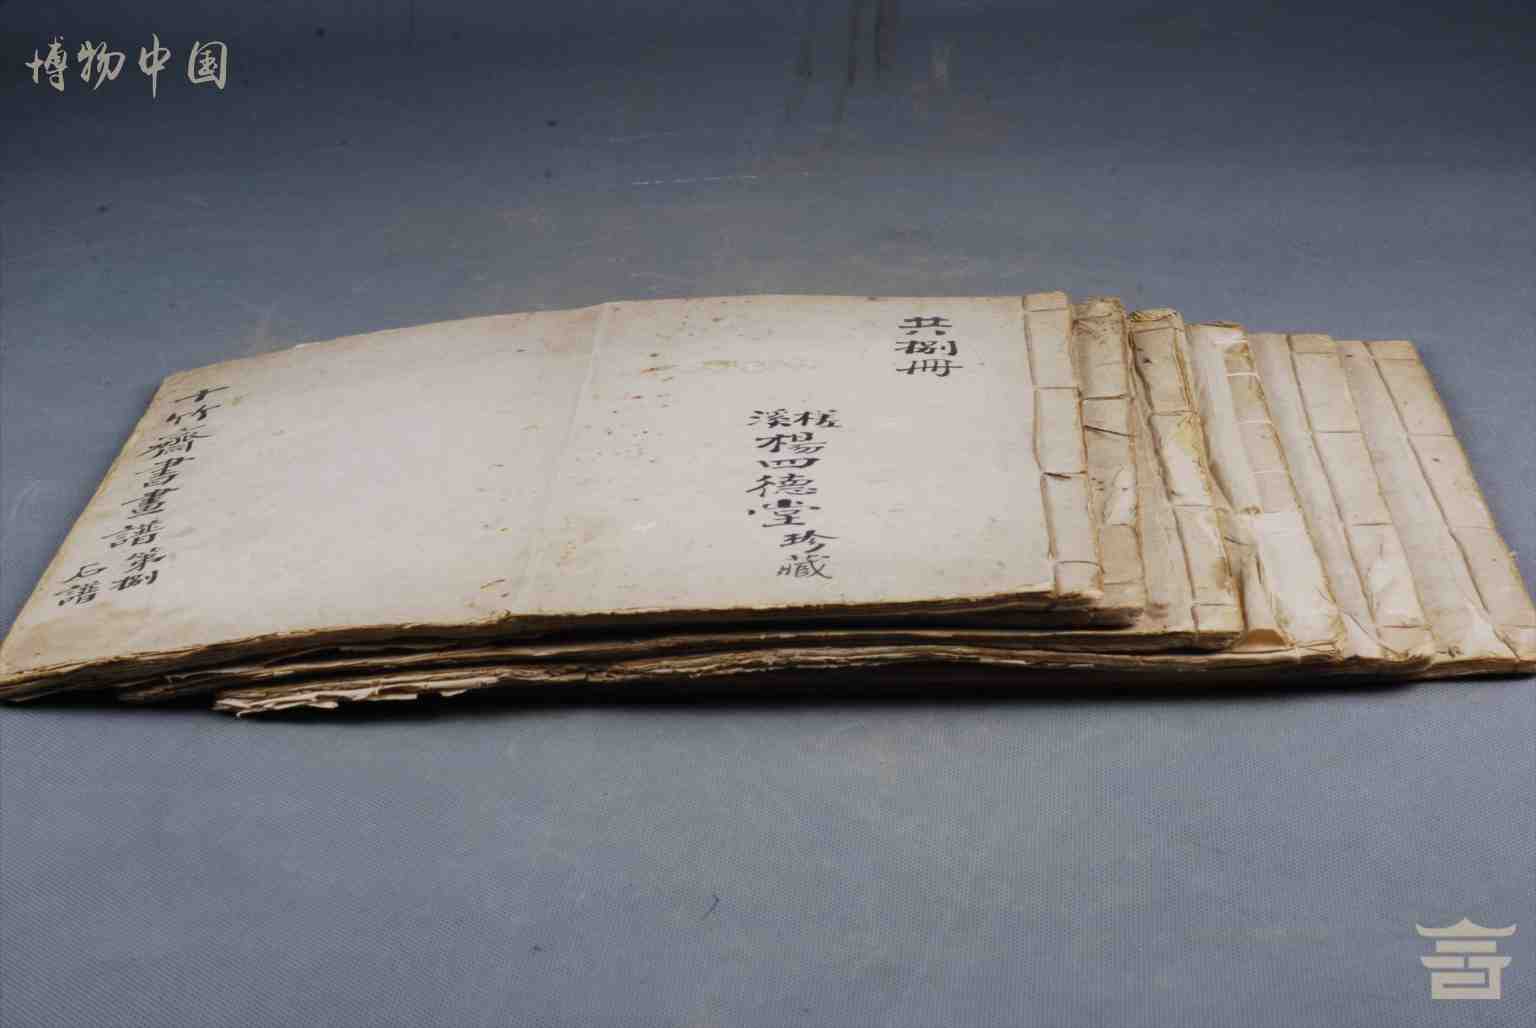 博物中国
共捌冊
槎溪
楊四德堂珍藏
十竹齋書畫譜第捌
石譜